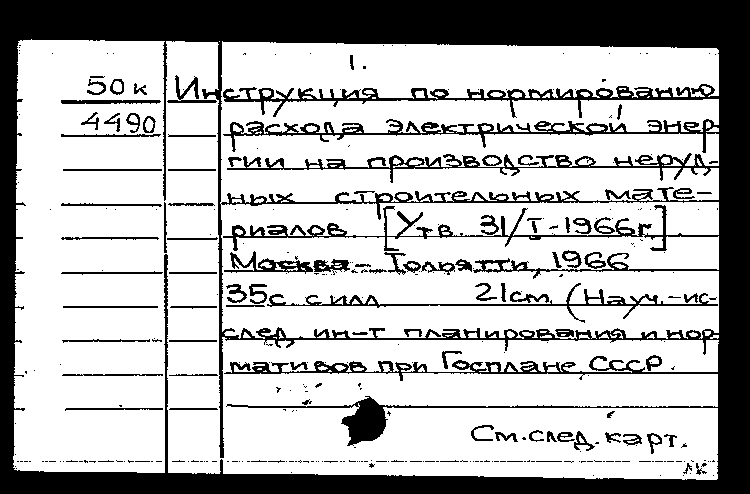 1.
50к Инструкция по нормированию
4490 расхода электрической энер-
гии на производство неруд-
ных строительных мате-
риалов. [Утв. 31/I-1966г.].
Москва - Тольятти, 1966
35с. с илл. 21см. (Науч.-ис-
след. ин-т планирования и нор-
мативов при Госплане СССР.
См. след. карт.